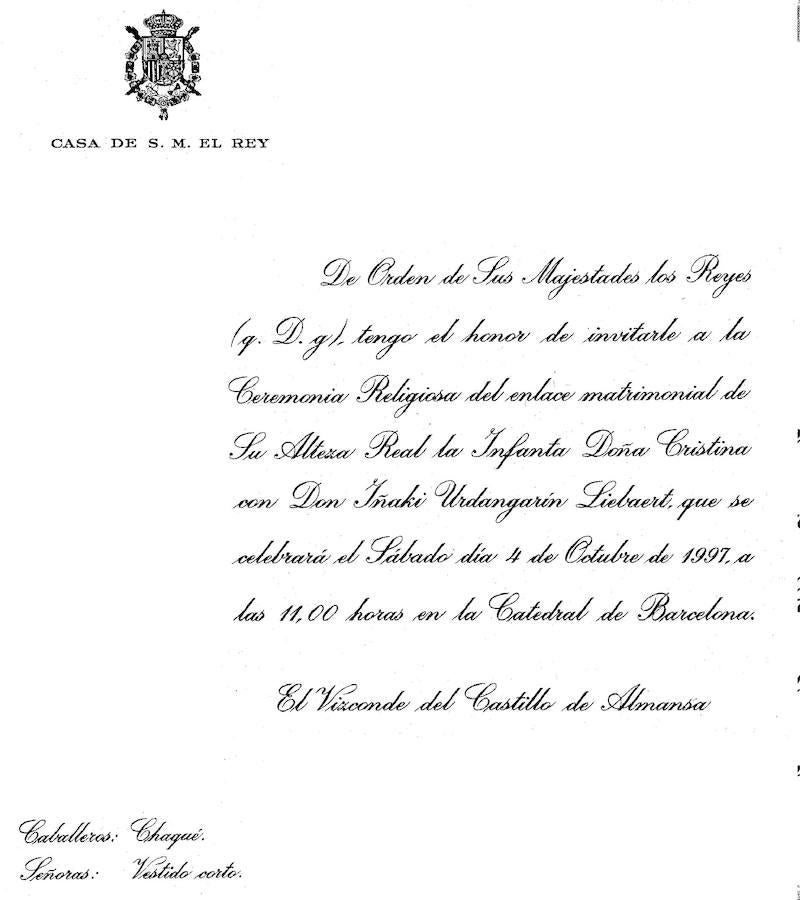 CASA DE S. M. EL REY
De Orden de Sus Majestades los Reyes
(q. D. g), tengo el honor de invitarle a la
Ceremonia Religiosa del enlace matrimonial de
Su Alteza Real la Infanta Doña Cristina
con Don Iñaki Urdangarín Liebaert, que se
celebrará el Sábado día 4 de Octubre de 1997, a
las 11,00 horas en la Catedral de Barcelona.
El Vizconde del Castillo de Almansa
Caballeros: Chaqué.
Señoras: Vestido corto.